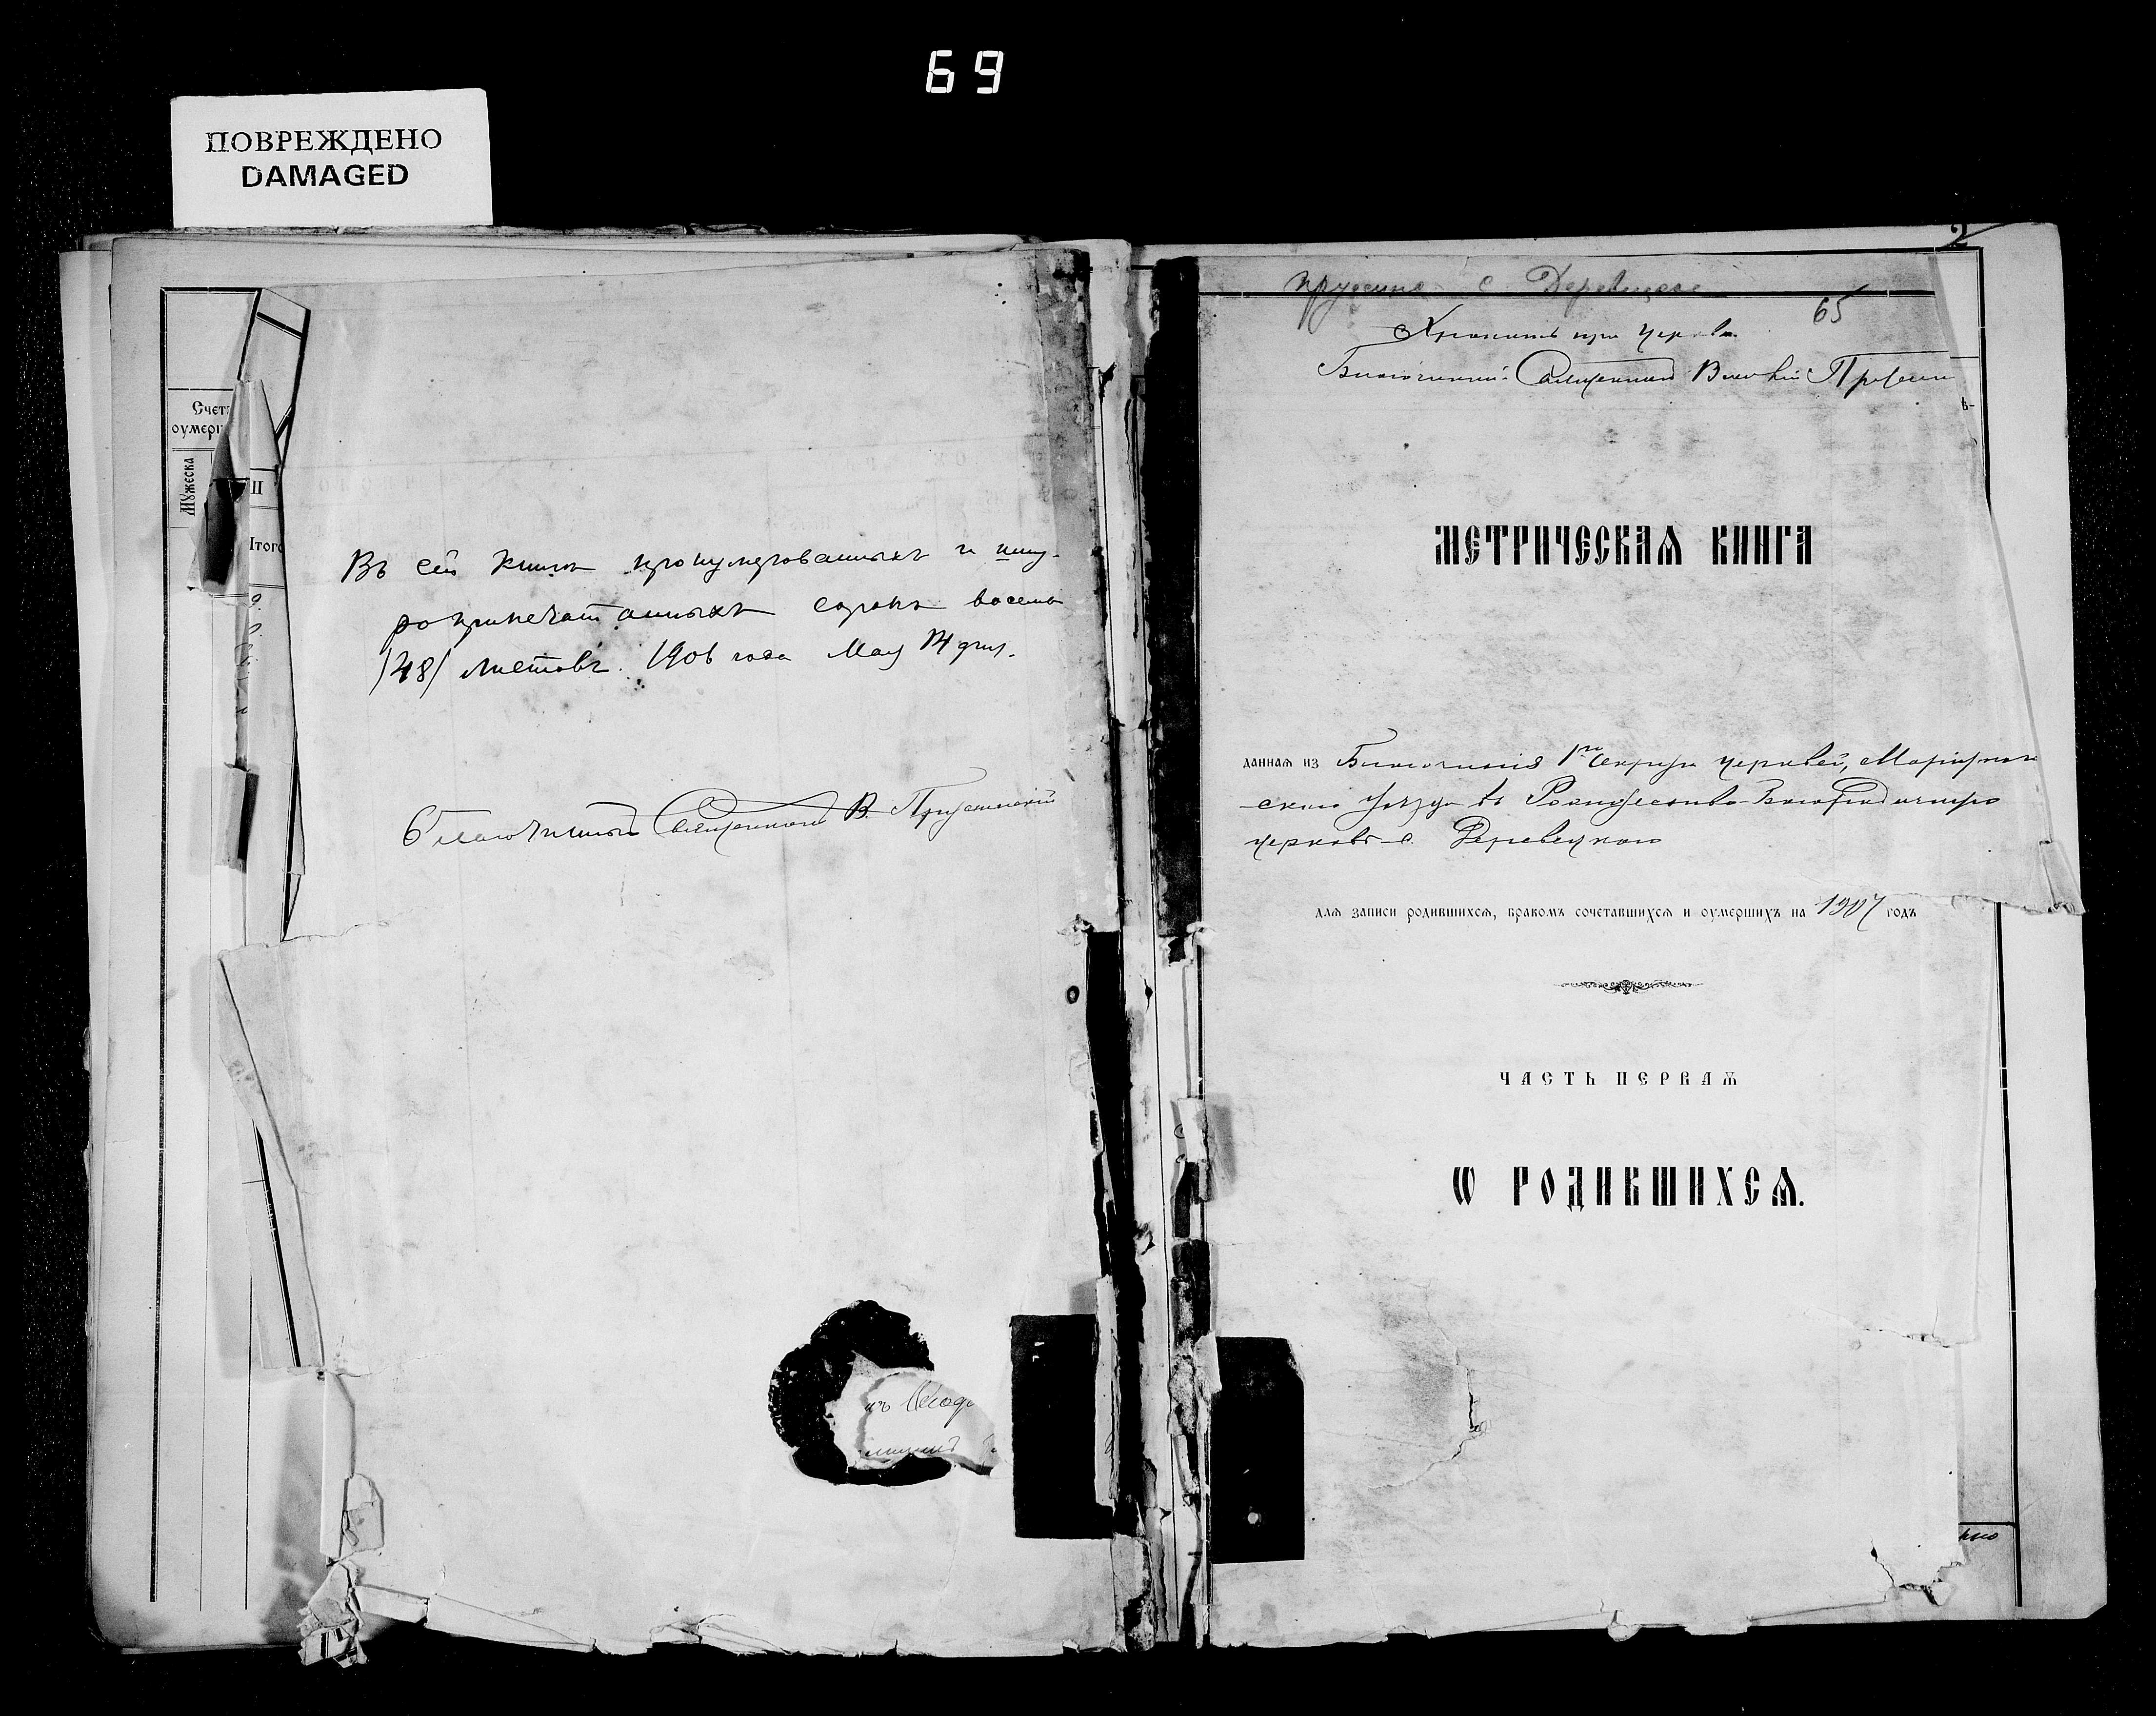 69
ПОВРЕЖДЕНО
DAMAGED
Счетъ
оумерш
Мужеска
II
Итого
Въ сей книгѣ пронумерованныхъ и шну-
роприпечатанныхъ сорокъ восемь
/48/ листовъ. 1906 года Мая 14 дня.
Благочинный Священникъ В.
2
с. Деревецкое
65
Хранить при церкви
Благочинный Священникъ
МЕТРИЧЕСКАѦ КНИГА
даннаѧ из Благочинія 1го округа церквей,
скаго уѣзда въ Рождество-Богородичную
церковь с. Деревецкаго
длѧ записи родившихсѧ, бракомъ сочетавшихсѧ и оумершихъ на 1907 годъ
ЧАСТЬ ПЕРВАѦ
Ѡ РОДИВШИХСѦ.